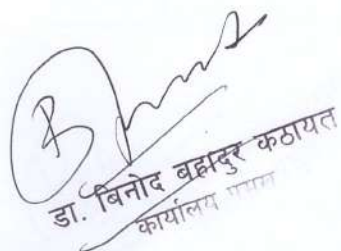 डा. बिनोद बहादुर कठायत
कार्यालय